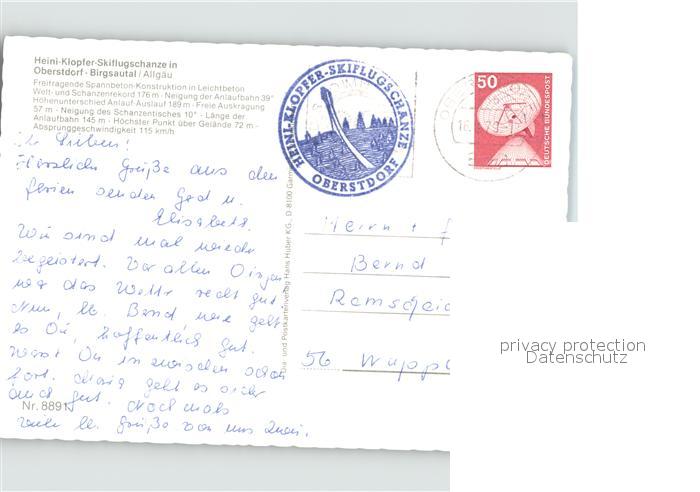 Heini-Klopfer-Skiflugschanze in
Oberstdorf - Birgsautal / Allgäu
Freitragende Spannbeton-Konstruktion in Leichtbeton
Welt- und Schanzenrekord 176 m - Neigung der Anlaufbahn 39°
Höhenunterschied Anlauf-Auslauf 189 m - Freie Auskragung
57 m - Neigung des Schanzentisches 10° - Länge der
Anlaufbahn 145 m - Höchster Punkt über Gelände 72 m -
Absprunggeschwindigkeit 115 km/h
Ihr Lieben!
Herzliche Grüße aus den
Ferien senden Gerd u.
Elisabeth.
Wir sind mal wieder
begeistert. Vor allen Dingen
war das Wetter recht gut.
Nun, lb. Bernd, wie geht
es Dir, hoffentlich gut.
Warst Du inzwischen schon
fort. geht es sicher
auch gut. Nochmals
viele lb. Grüße von uns Zwei.
Nr. 8891
Dia- und Postkartenverlag Hans Huber KG., D-8100 Garm
HEINI-KLOPFER-SKIFLUGSCHANZE
OBERSTDORF
50
DEUTSCHE BUNDESPOST
Herrn +
Bernd
Remscheid
56 Wupp
privacy protection
Datenschutz